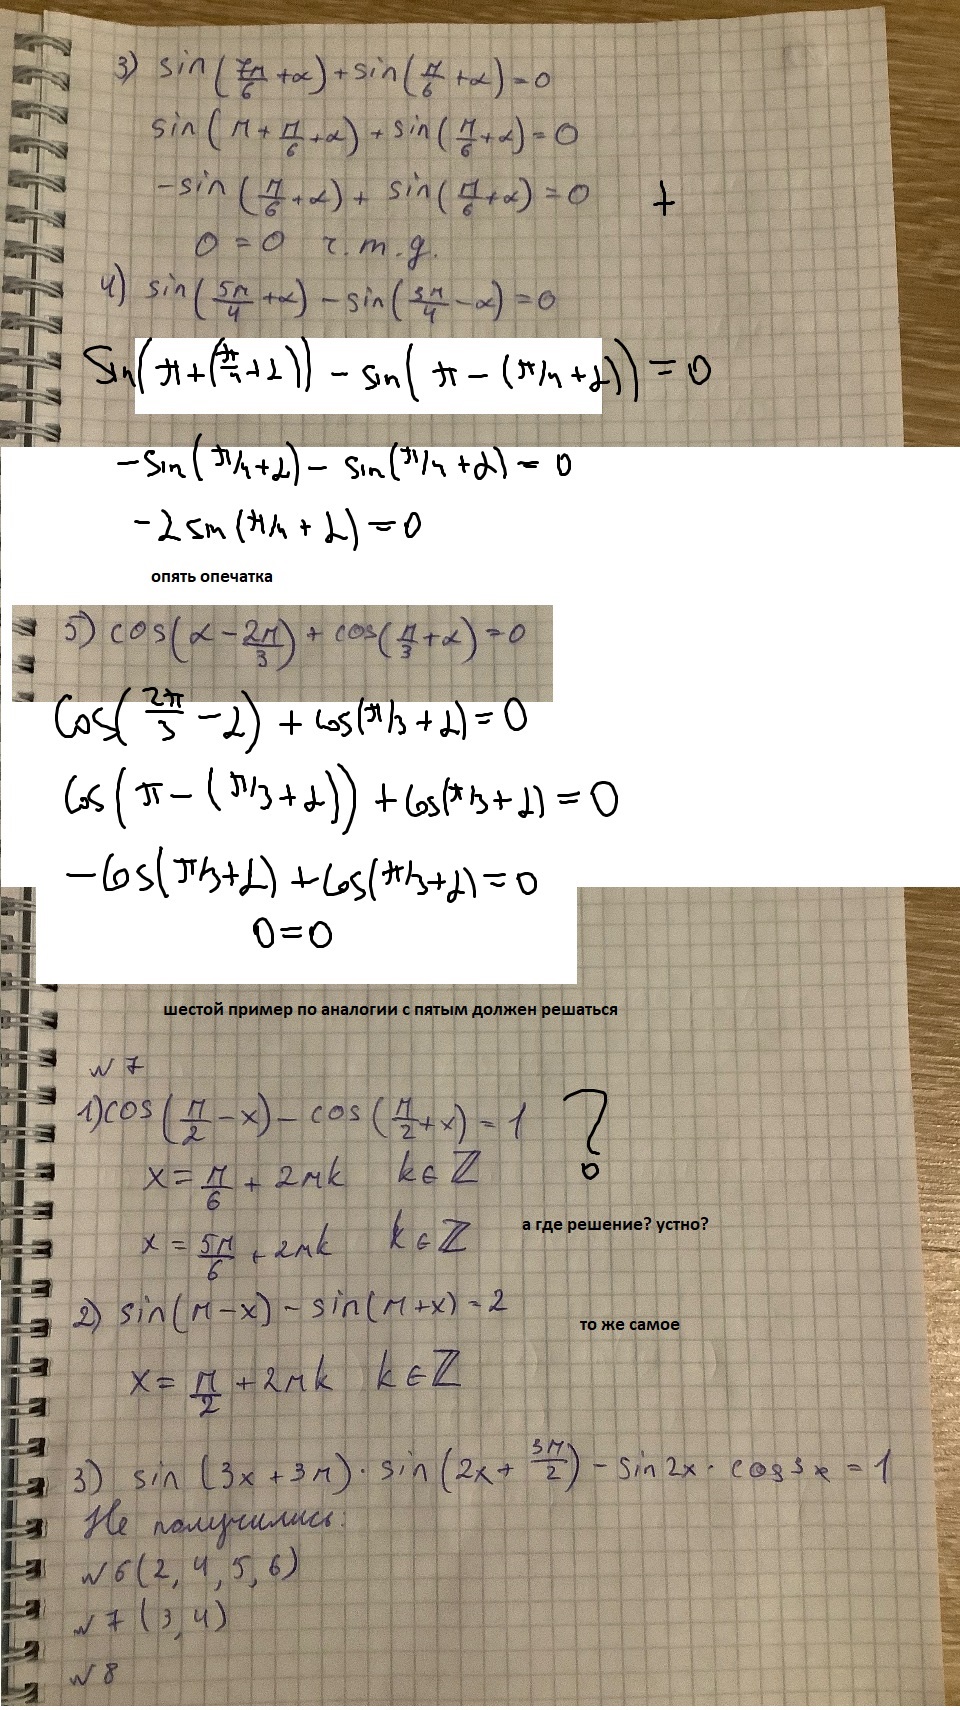 3) sin(7π/6 + α) + sin(π/6 + α) = 0
sin(π + π/6 + α) + sin(π/6 + α) = 0
- sin(π/6 + α) + sin(π/6 + α) = 0 +
0 = 0 ч.т.д.
4) sin(5π/4 + α) - sin(3π/4 - α) = 0
Sin(π + (π/4 + α)) - sin(π - (π/4 + α)) = 0
- sin(π/4 + α) - sin(π/4 + α) = 0
- 2 sin(π/4 + α) = 0
опять опечатка
5) cos(α - 2π/3) + cos(π/3 + α) = 0
Cos(2π/3 - α) + cos(π/3 + α) = 0
Cos(π - (π/3 + α)) + cos(π/3 + α) = 0
- Cos(π/3 + α) + cos(π/3 + α) = 0
0 = 0
шестой пример по аналогии с пятым должен решаться
№ 7
1) cos(π/2 - x) - cos(π/2 + x) = 1 ?
x = π/6 + 2πk k ∈ ℤ
а где решение? устно?
x = 5π/6 + 2πk k ∈ ℤ
2) sin(π - x) - sin(π + x) = 2
то же самое
x = π/2 + 2πk k ∈ ℤ
3) sin(3x + 3π) · sin(2x + 3π/2) - sin2x · cos3x = 1
Не получились:
№6 (2, 4, 5, 6)
№ 7 (3, 4)
№ 8